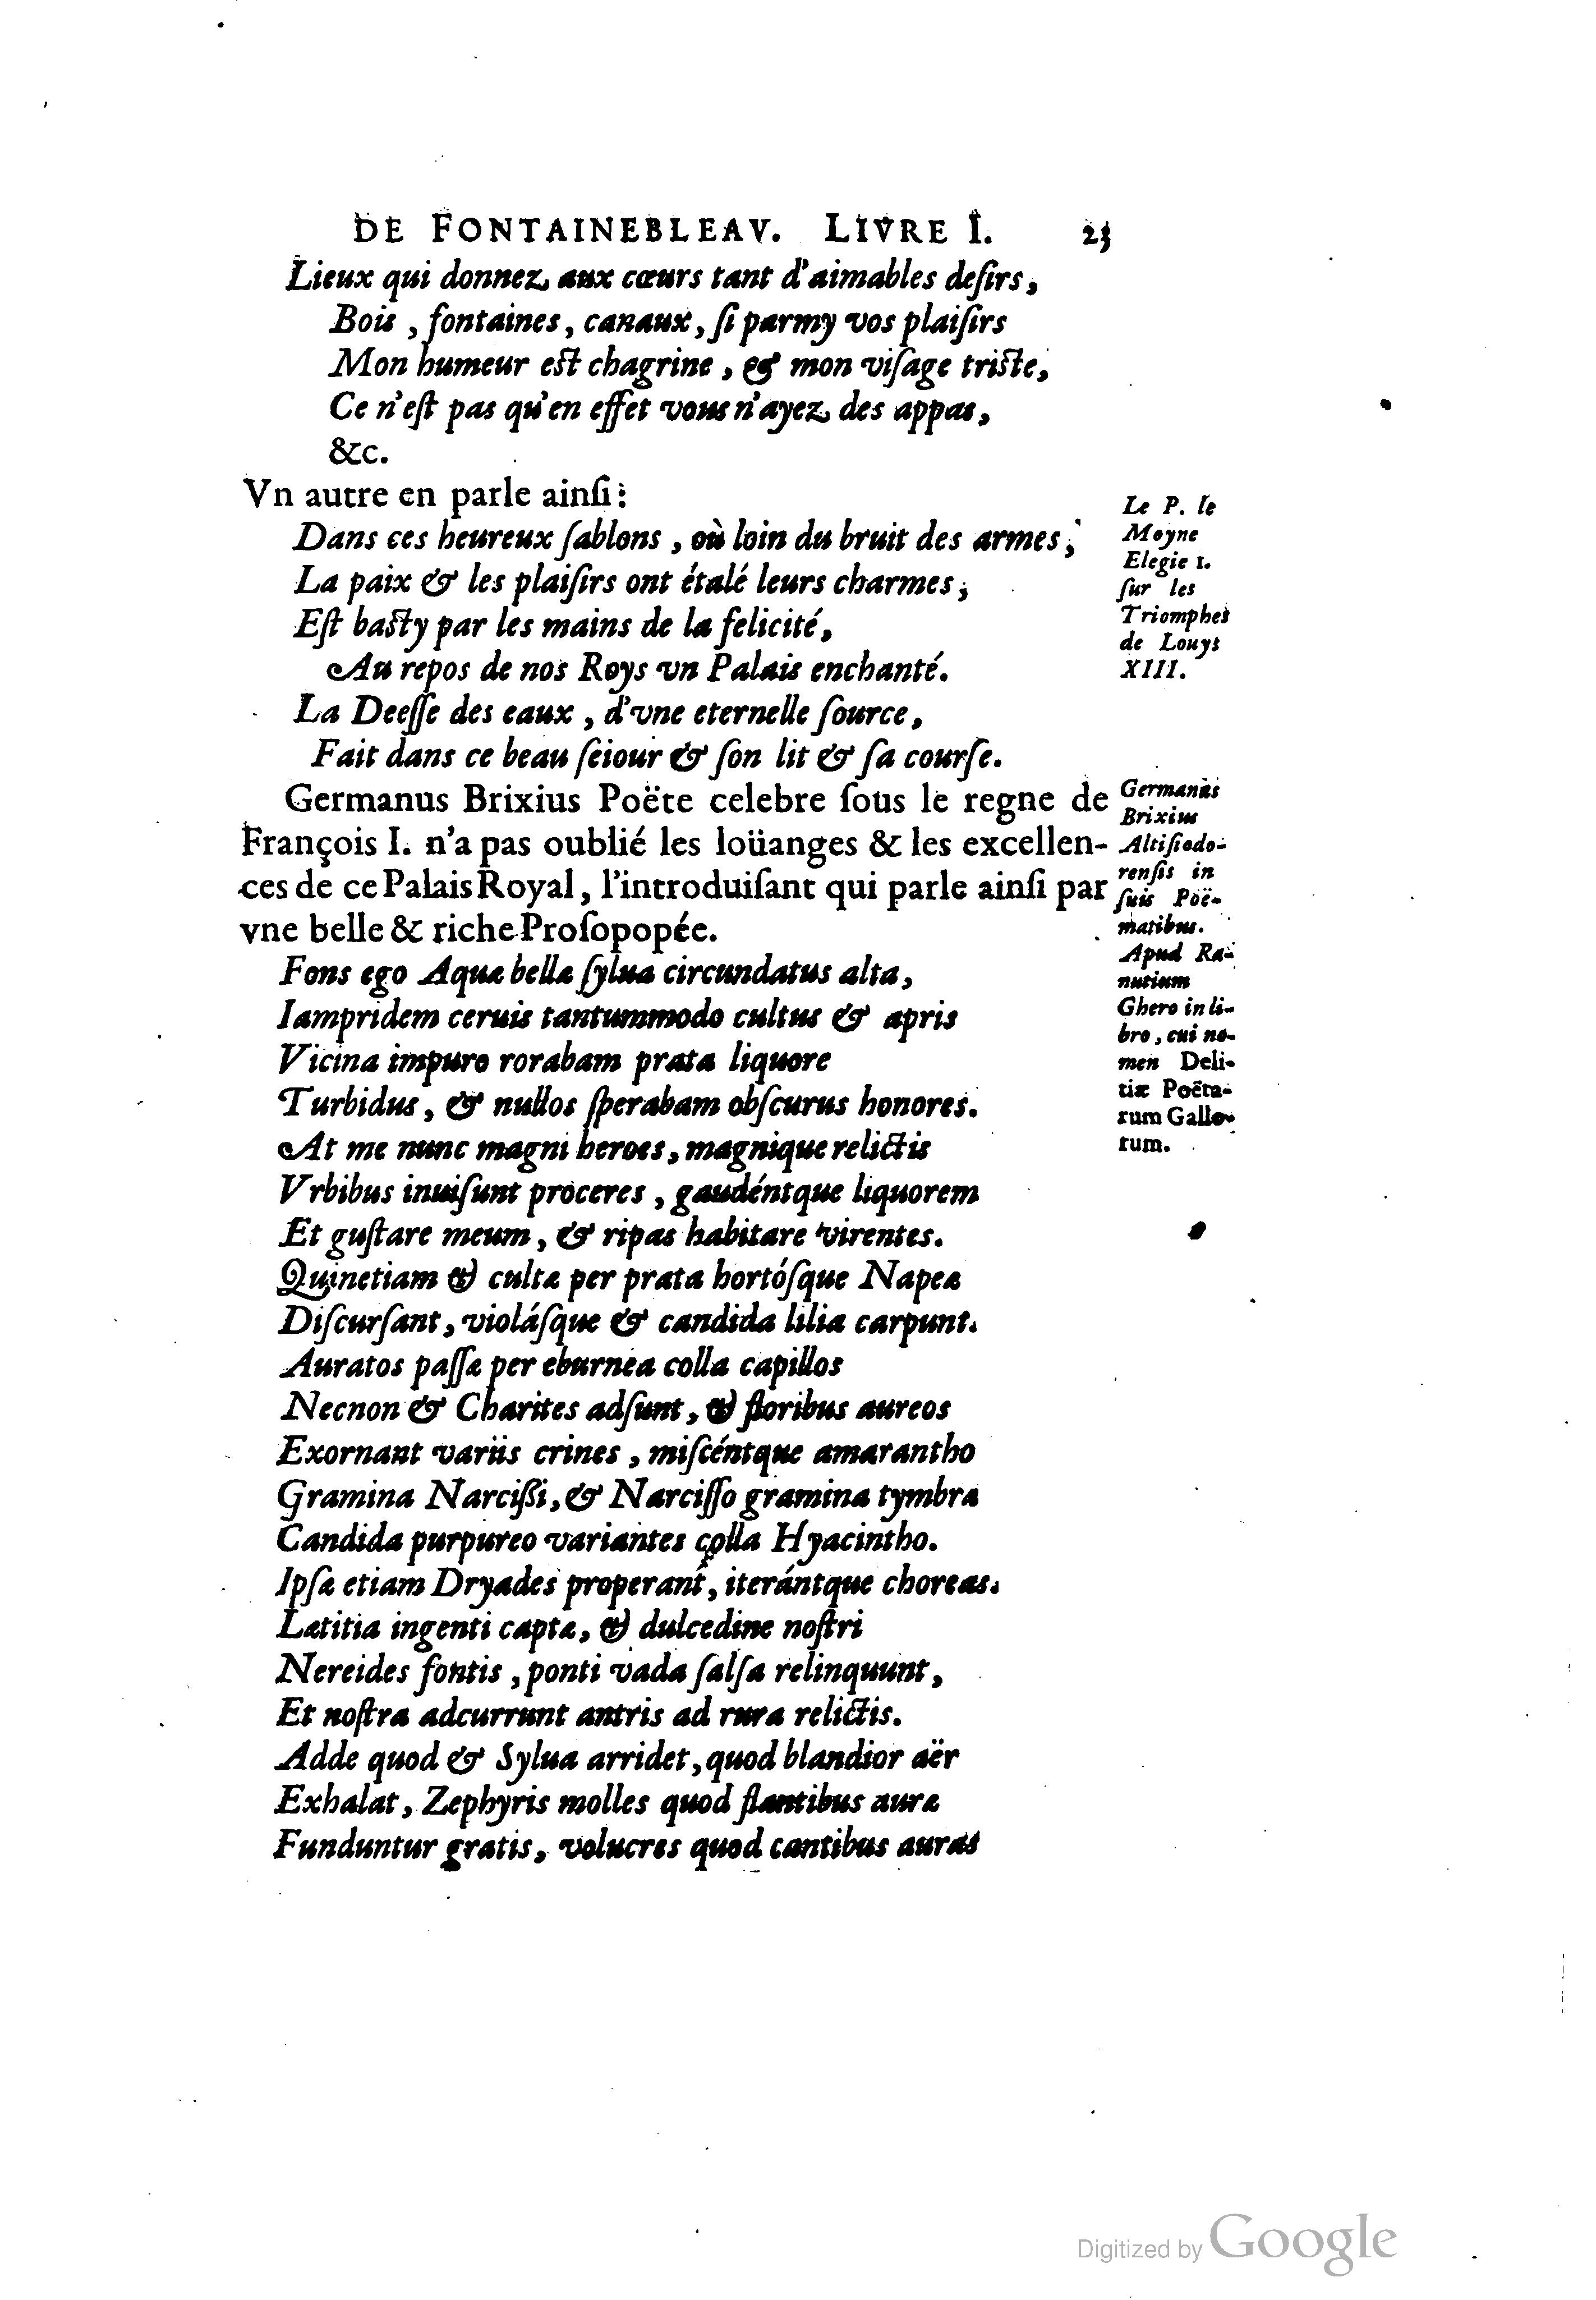 DE FONTAINEBLEAV. LIVRE I. 23
Lieux qui donnez aux cœurs tant d'aimables deſirs,
Bois, fontaines, canaux, ſi parmy vos plaiſirs
Mon humeur est chagrine, & mon viſage triste,
Ce n'eſt pas qu'en effet vous n'ayez des appas,
&c.
Vn autre en parle ainſi:
Dans ces heureux ſablons, où loin du bruit des armes,
La paix & les plaiſirs ont étalé leurs charmes,
Eſt basty par les mains de la felicité,
Au repos de nos Roys vn Palais enchanté.
La Deeſſe des eaux, d'vne eternelle ſource,
Fait dans ce beau ſeiour & ſon lit & ſa courſe.
Le P. le
Moyne
Elegie 1.
ſur les
Triomphes
de Louys
XIII.
Germanus Brixius Poëte celebre ſous le regne de
François I. n'a pas oublié les loüanges & les excellen-
ces de ce Palais Royal, l'introduiſant qui parle ainſi par
vne belle & riche Proſopopée.
Germanus
Brixius
Altiſiodo-
renſis in
ſuis Poë-
matibus.
Apud Ra-
nutium
Ghero in li-
bro, cui no-
men Deli-
tiæ Poëta-
rum Gallo-
rum.
Fons ego Aquæ bellæ ſylua circundatus alta,
Iampridem ceruis tantummodo cultus & apris
Vicina impuro rorabam prata liquore
Turbidus, & nullos ſperabam obſcurus honores.
At me nunc magni heroes, magnique relictis
Vrbibus inuiſunt proceres, gaudéntque liquorem
Et guſtare meum, & ripas habitare virentes.
Quinetiam & cultæ per prata hortóſque Napeæ
Diſcurſant, violáſque & candida lilia carpunt.
Auratos paſſæ per eburnea colla capillos
Necnon & Charites adſunt, & floribus aureos
Exornant variis crines, miſcéntque amarantho
Gramina Narciſſi, & Narciſſo gramina tymbræ
Candida purpureo variantes colla Hyacintho.
Ipſæ etiam Dryades properant, iterántque choreas.
Lætitia ingenti captæ, & dulcedine noſtri
Nereides fontis, ponti vada ſalſa relinquunt,
Et noſtra adcurrunt antris ad rura relictis.
Adde quod & Sylua arridet, quod blandior aër
Exhalat, Zephyris molles quod flantibus auræ
Funduntur gratis, volucres quod cantibus auras
Digitized by Google